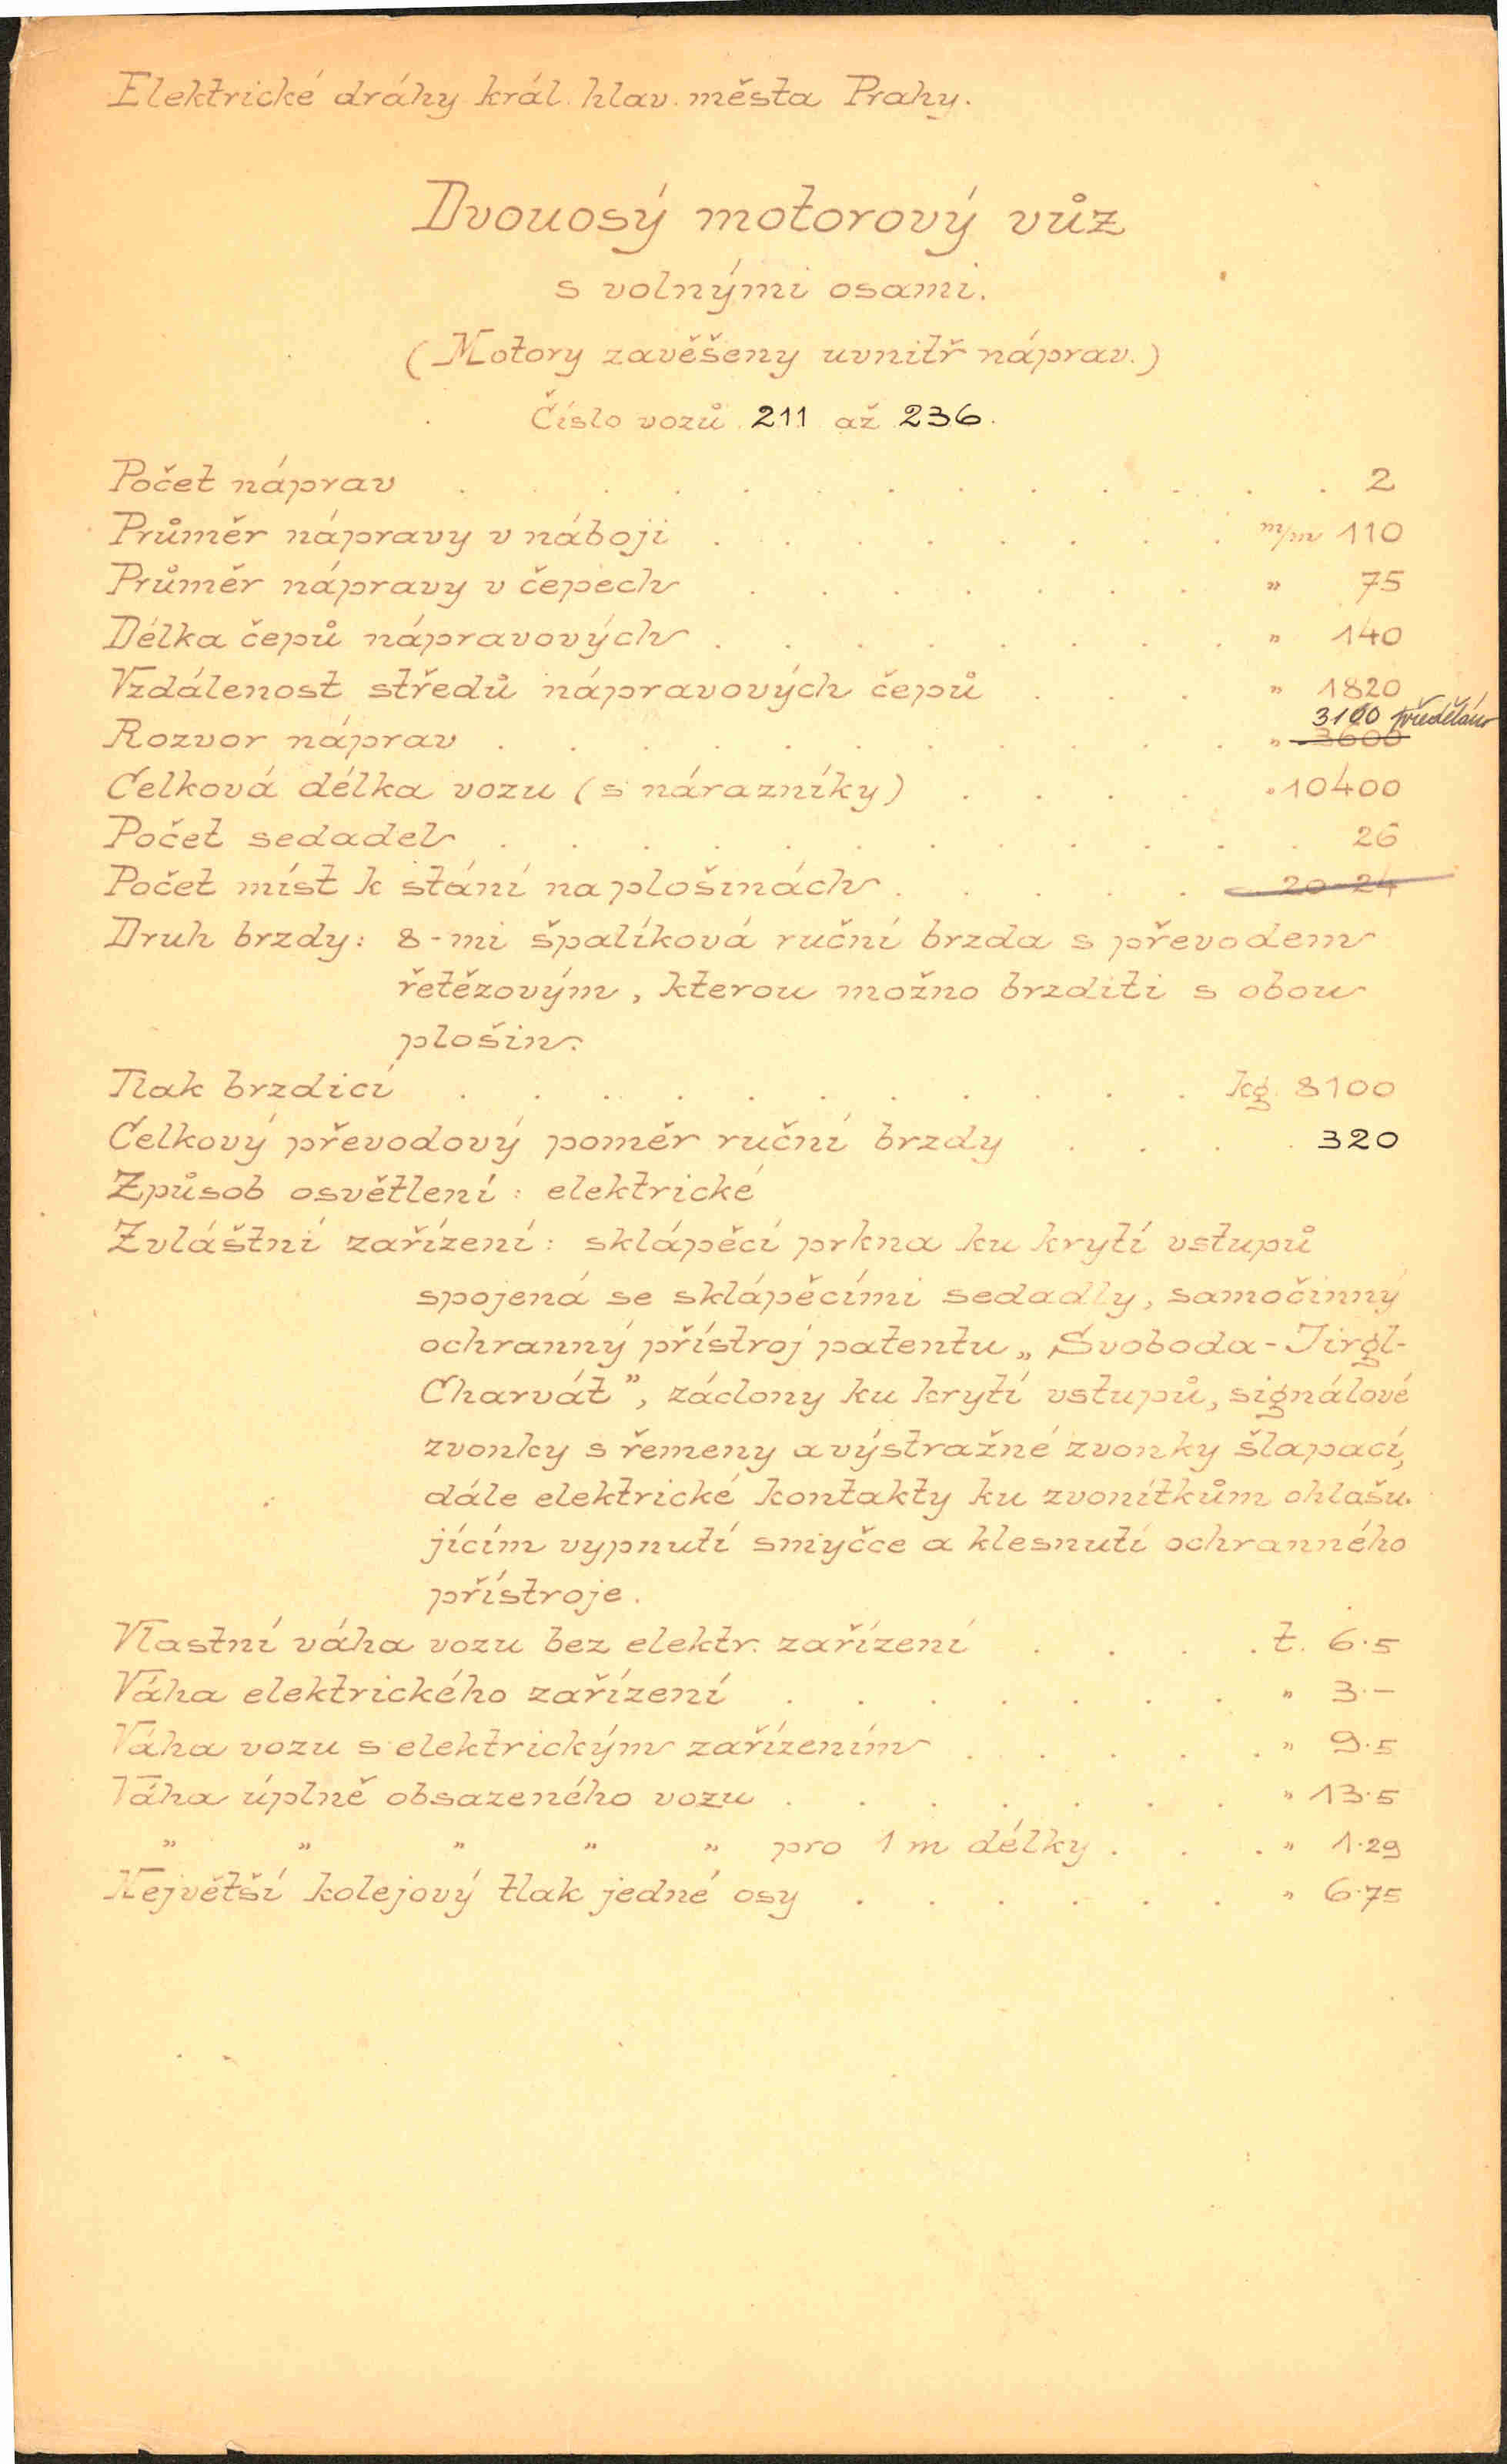 Elektrické dráhy král. hlav. města Prahy.
Dvouosý motorový vůz
s volnými osami.
(Motory zavěšeny uvnitř náprav.)
Číslo vozů 211 až 236.
Počet náprav . . . . . . . . . . . . . 2
Průměr nápravy v náboji . . . . . . . . m/m 110
Průměr nápravy v čepech . . . . . . . " 75
Délka čepů nápravových . . . . . . . . " 140
Vzdálenost středů nápravových čepů . . . " 1820
3100 předěláno
Rozvor náprav . . . . . . . . . . . " 3600
Celková délka vozu (s nárazníky) . . . . " 10400
Počet sedadel . . . . . . . . . . . . 26
Počet míst k stání na plošinách . . . . . 20-24
Druh brzdy: 8-mi špalíková ruční brzda s převodem
řetězovým, kterou možno brzditi s obou
plošin.
Tlak brzdicí . . . . . . . . . . . kg. 8100
Celkový převodový poměr ruční brzdy . . . . 320
Způsob osvětlení: elektrické
Zvláštní zařízení: sklápěcí prkna ku krytí vstupů
spojená se sklápěcími sedadly, samočinný
ochranný přístroj patentu „Svoboda-Jirgl-
Charvát”, záclony ku krytí vstupů, signálové
zvonky s řemeny a výstražné zvonky šlapací,
dále elektrické kontakty ku zvonítkům ohlašu-
jícím vypnutí smyčce a klesnutí ochranného
přístroje.
Vlastní váha vozu bez elektr. zařízení . . . . t. 6·5
Váha elektrického zařízení . . . . . . . " 3·—
Váha vozu s elektrickým zařízením . . . . . " 9·5
Váha úplně obsazeného vozu . . . . . . . " 13·5
" " " " " pro 1 m délky . . . " 1·29
Největší kolejový tlak jedné osy . . . . . . " 6·75